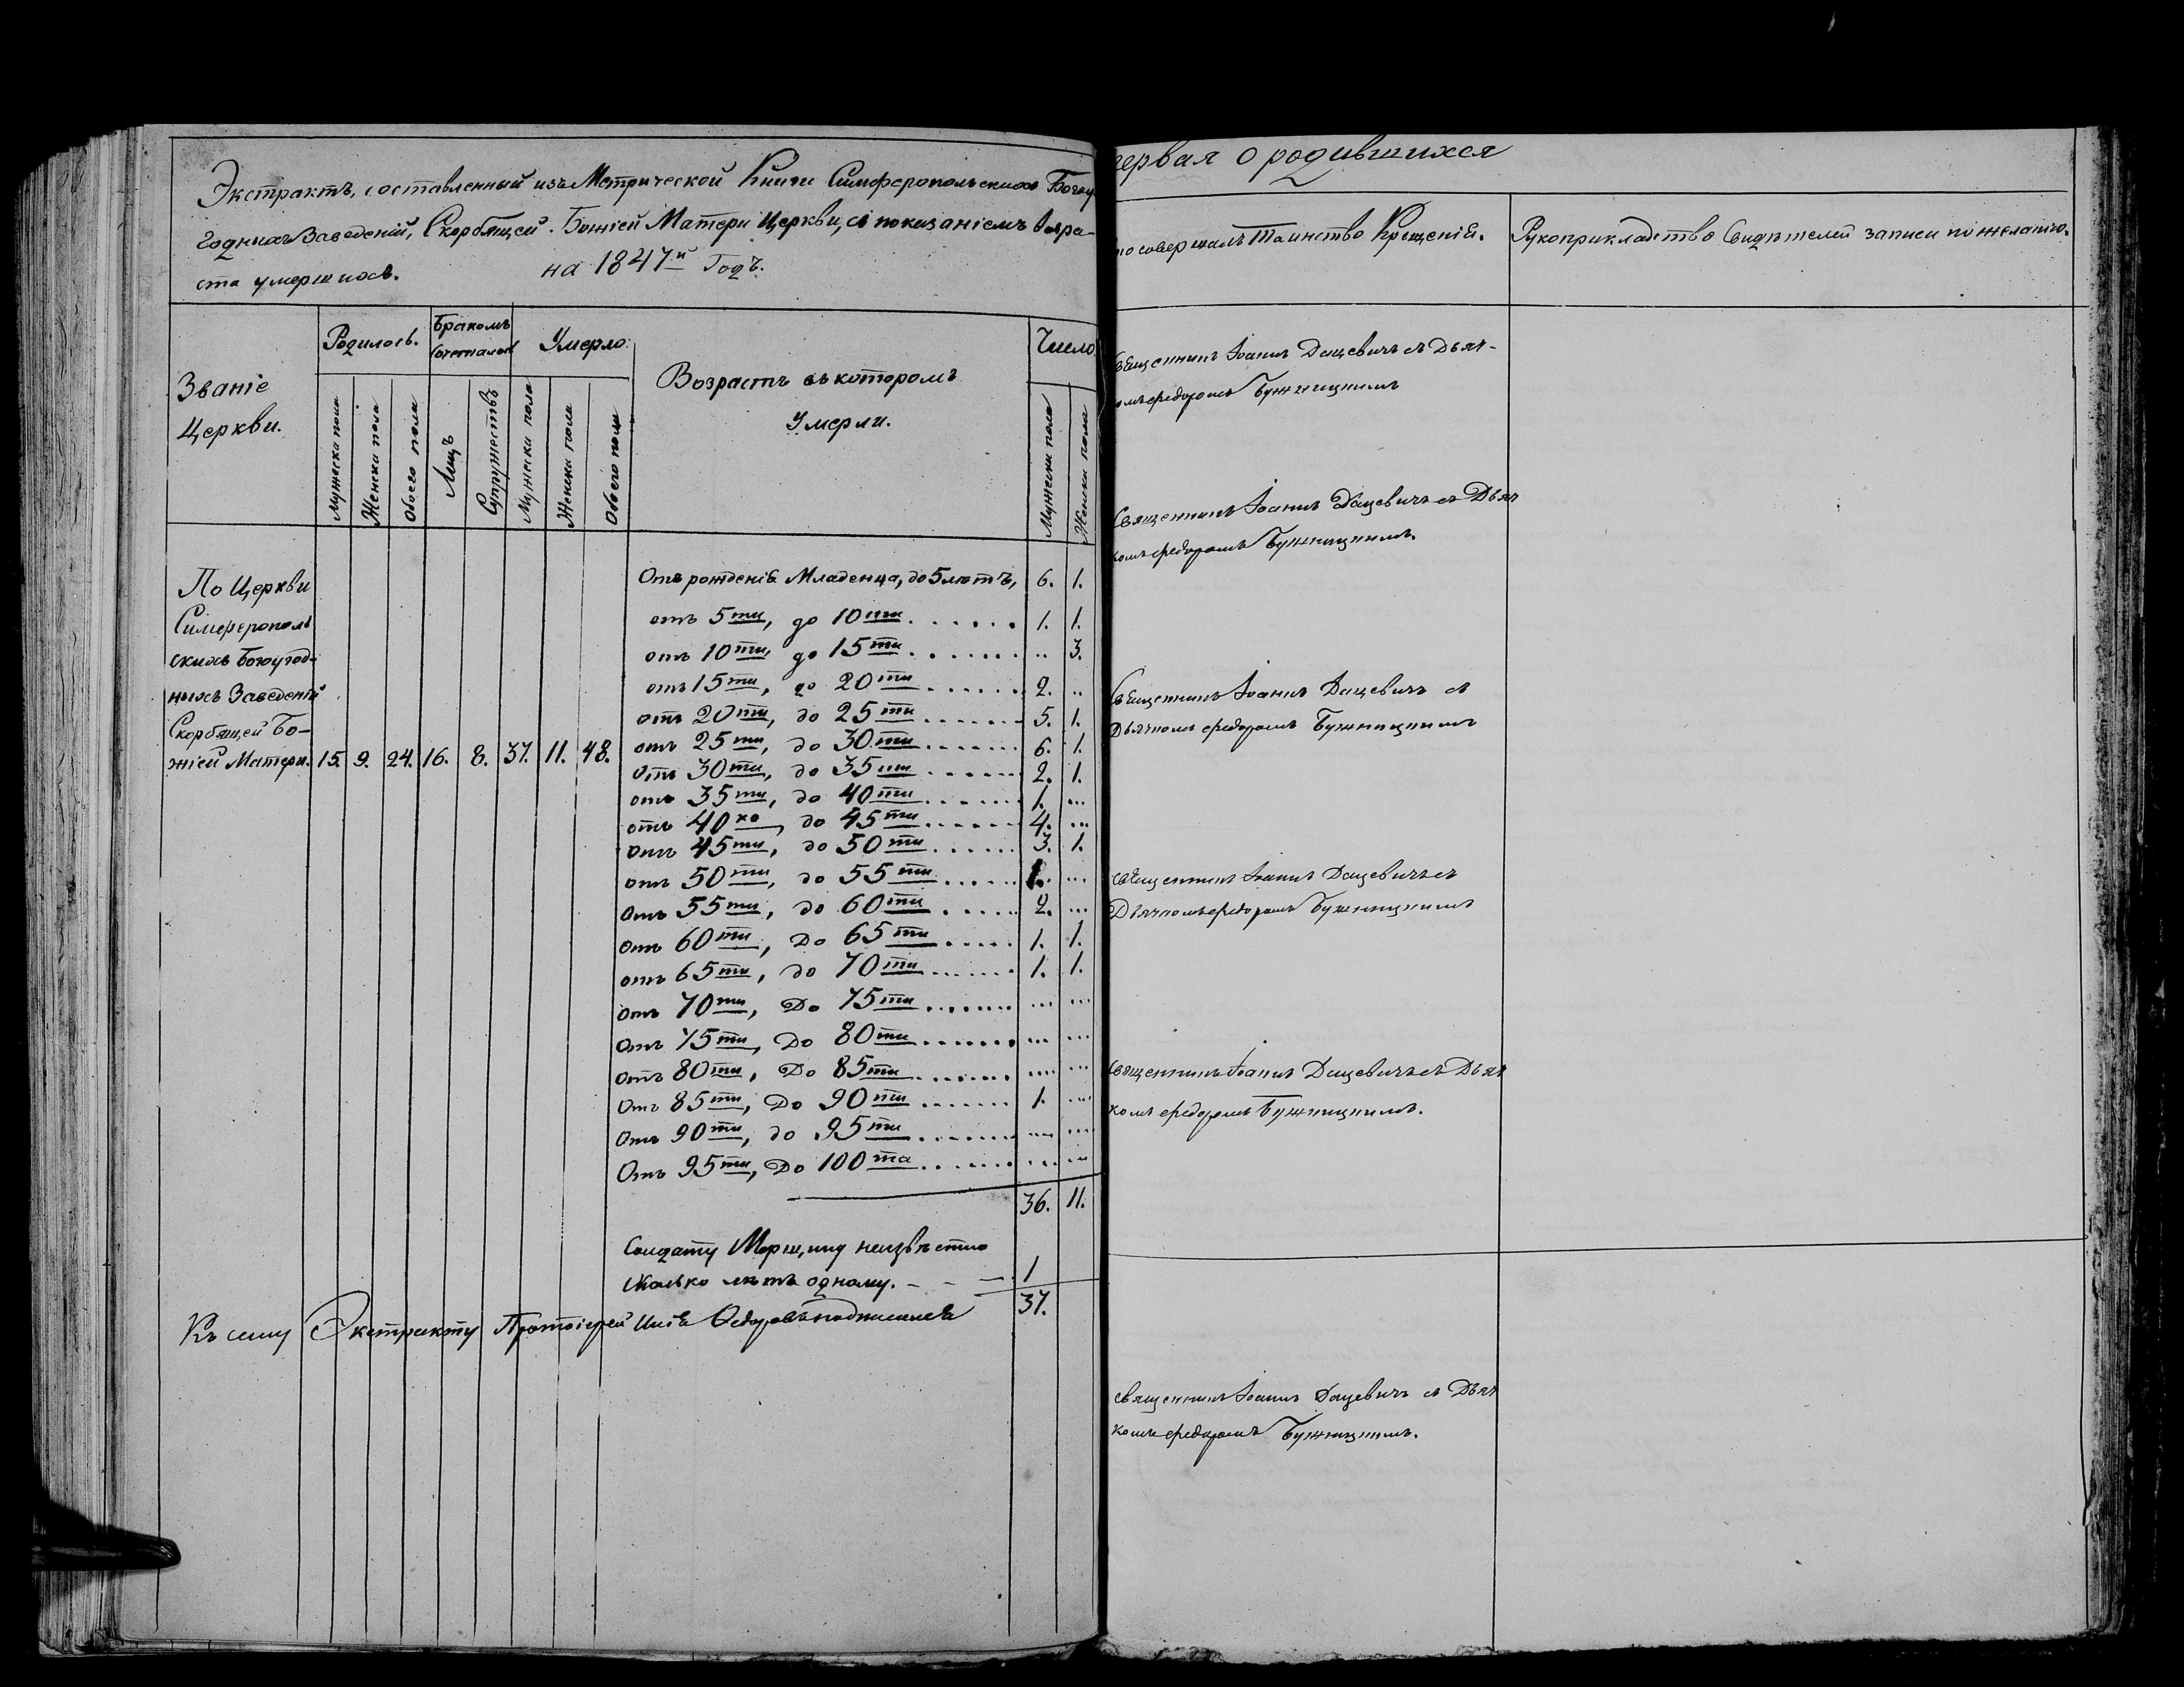 Экстрактъ, составленный изъ Метрической Книги Симферопольскихъ Богоу
годныхъ Заведеній, Скорбящей Божіей Матери Церкви, съ показаніемъ возра-
ста умершихъ. на 1847й Годъ.
Званіе
Церкви.
Родилось.
Бракомъ
сочеталось
Умерло.
Возрастъ въ которомъ
Умерли.
Число
Мужеска пола
Женска пола
Обоего пола
Лицъ
Супружествъ
Мужеска пола
Женска пола
Обоего пола
Мужеска пола
Женска пола
По Церкви
Симферополь
скихъ Богоугод-
ныхъ Заведеній
Скорбящей Бо-
жіей Матери. 15. 9. 24. 16. 8. 37. 11. 48.
Отъ рожденія Младенца, до 5 лѣтъ, 6. 1.
отъ 5ти, до 10ти . . . . . . 1. 1.
отъ 10ти, до 15ти . . . . . . .. 3.
отъ 15ти, до 20ти . . . . . . 2. ..
отъ 20ти, до 25ти . . . . . . 5. 1.
отъ 25ти, до 30ти . . . . . . 6. 1.
отъ 30ти, до 35ти . . . . . . 2. 1.
отъ 35ти, до 40ти . . . . . . 1. ...
отъ 40ко, до 45ти . . . . . . 4. ...
отъ 45ти, до 50ти . . . . . . 3. 1.
отъ 50ти, до 55ти . . . . . . 1. ...
отъ 55ти, до 60ти . . . . . . 2. ...
отъ 60ти, До 65ти . . . . . 1. 1.
отъ 65ти, до 70ти . . . . . . 1. 1.
отъ 70ти, До 75ти . . . . . . ... ...
отъ 75ти, До 80ти . . . . . . ... ...
отъ 80ти, До 85ти . . . . . . ... ...
Отъ 85ти, До 90ти . . . . . . 1. ...
Отъ 90ти, до 95ти . . . . . . ... ...
Отъ 95ти, До 100та . . . . . . ... ...
36. 11.
Солдату неизвѣстно
сколько лѣтъ одному. - - - 1
37.
Къ сему Экстракту Протоіерей Ѳедоровъ подписался
первая о родившихся
то совершалъ Таинство Крещенія.
Рукоприкладство Свидѣтелей записи по желанію.
Священникъ Іоаннъ Дацевичъ съ Дьяч-
комъ Федоромъ Бужницкимъ
Священникъ Іоаннъ Дацевичъ съ Дьяч
комъ Федоромъ Бужницкимъ.
Священникъ Іоаннъ Дацевичъ съ
Дьячкомъ Федоромъ Бужницкимъ
священникъ Іоаннъ Дацевичъ съ
Дьячкомъ Федоромъ Бужницкимъ
священникъ Іоаннъ Дацевичъ съ Дьяч
комъ Федоромъ Бужницкимъ.
священникъ Іоаннъ Дацевичъ съ Дьяч
комъ Федоромъ Бужницкимъ.